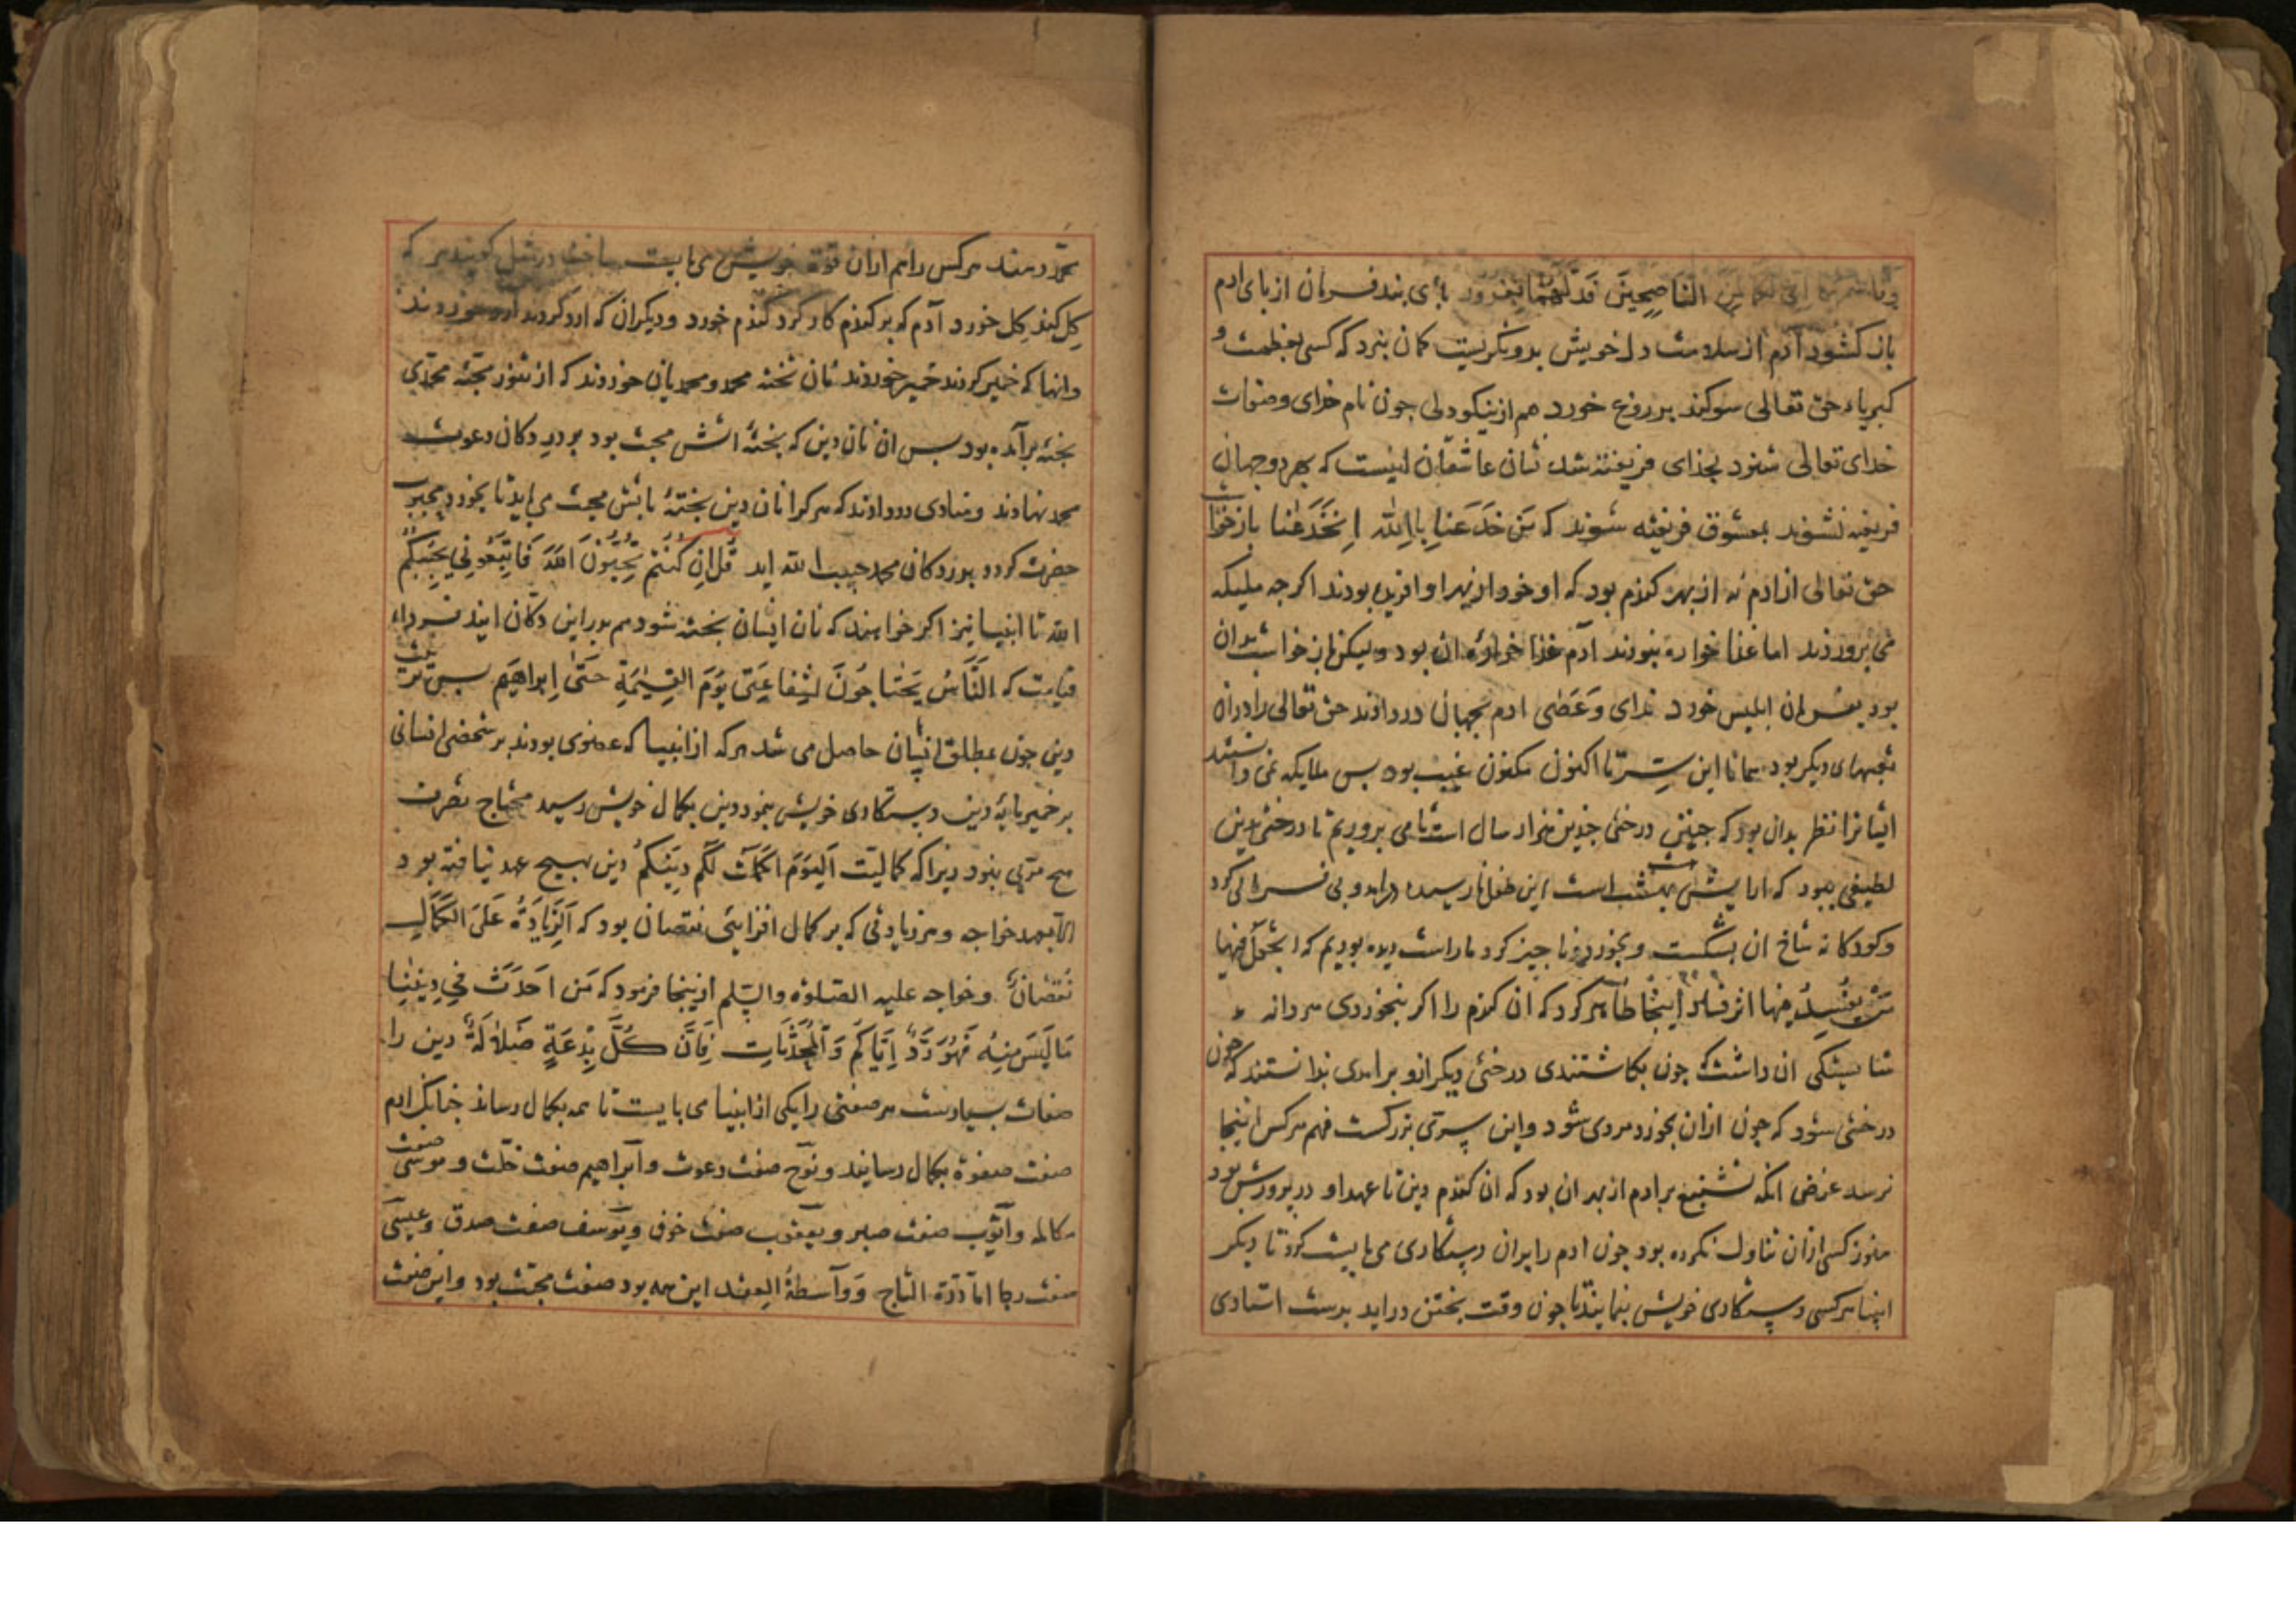 وقاسمهما انی لکما لمن الناصحین فدلهما بغرور پای بند فرمان از پای ادم
باز کشود آدم از سلامت دل خویش بدو نکریست کمان نبرد که کسی بعظمت و
کبریاء حق تعالی سوکند بدروغ خورد هم از نیکودلی جون نام خدای وصفات
خدای تعالی شنود بخدای فریفته شد نشان عاشقان اینست که بهر دو جهان
فریفته نشوند بمعشوق فریفته شوند که مَن خَدَعَنا بِاللهِ اِنخَدَعنا بازخواست
حق تعالی از ادم نه از بهر کندم بود که او خود از بهر او افریده بودند اکرجه ملیکه
می پروردند اما غذا خواره نبودند آدم غذا خواره ان بود ولیکن باز خواست بدان
بود بفرمان ابلیس خورد ندای وَعَصٰی ادم بجهان در دادند حق تعالی را دران
تعبیهای دیکر بود همانا این سِر تا اکنون مکنون غیب بود بس ملایکه نمی دانستند
ایشانرا نظر بدان بود که جنین درختی جندین هزار سال است تا می بروریم تا درختی بدین
لطیفی ببود که ارایش بهشت است این طفل نارسیده درامد و بی فرمانی کرد
وکودکانه شاخ ان بشکست وبخورد و ناجیز کرد ما راست دیده بودیم که اتجعل فیها
مَن یُفسِدُ فیها اثر فساد اینجا ظاهر کرد که ان کندم را اکر بنخوردی مردانه
شایستکی ان داشت که جون بکاشتندی درختی دیکر ازو برامدی ندانستند که جون
درختی شود که جون ازان بخورد مردی شود واین سِرّی بزرکست فهم هرکس اینجا
نرسد غرض انکه تشنیع بر ادم از بهر ان بود که ان کندم دین تا عهد او در پرورش بود
هنوز کسی ازان تناول نکرده بود جون ادم را بران دستکاری می بایست کرد تا دیکر
انبیا هر کسی دستکاری خویش بنمایند تا جون وقت بختن دراید بدست استادی
محمّد رسند هرکس را هم ازان قوة خویش می بایست ساخت در مثل کویند هر که
کِل کند کِل خورد آدم که بر کندم کار کرد کندم خورد ودیکران که ارد کردند آرد خوردند
وانها که خمیر کردند خمیر خوردند نان بخته محمد ومحمدیان خوردند که از تنور محبّت محمّدی
بخته برآمده بود بس ان نان دین که بختۀ اتش محبت بود بر در دکان دعوت
محمد نهادند ومنادی در دادند که هر کرا نان دین بختۀ باتش محبت می باید تا بخورد ومحبوب
حضرت کردد بدر دکان محمد حبیب الله اید قُل اِن کُنتُم تُحِبُّونَ اللهَ فَاتَّبِعُونِی یُحبِبکُمُ
الله تا انبیا نیز اکر خواهند که نان ایشان بخته شود هم بدر این دکان ایند فرداء
قیامت که اَلنّاسُ یَحتاجُونَ لِشَفاعَتی یَومَ القِیٰمَةِ حَتّٰی اِبراهیَم بس تربیت
دین جون بمطلق انسان حاصل می شد هر که از انبیا که عضوی بودند بر شخص انسانی
بر خمیر مایۀ دین دستکاری خویش بنمود دین بکمال خویش رسید محتاج تصرف
هیچ مربّی نبود زیرا که کمالیّت اَلیَومَ اَکمَلتُ لَکُم دِینَکُم دین بهیچ عهد نیافته بود
الّا بعهد خواجه وهر زیادتی که بر کمال افزایی نقصان بود که اَلزِّیادَةُ عَلَی الکَمالِ
نُقصانٌ وخواجه علیه الصلوة والسّلم ازینجا فرمود که مَن اَحدَثَ فِی دِینِنا
مَا لَیسَ مِنهُ فَهُوَ رَدٌّ اِیّاکُم وَالمُحدَثاتِ فَاِنَّ کُلَّ بِدعَةٍ ضَلالَةٌ دین را
صفات بسیارست هر صفتی را یکی از انبیا می بایست تا همه بکمال رساند جنانک ادم
صفت صفوة بکمال رسانید ونوح صفت دعوت وابراهیم صفت خلّت و موسَی صفت
مکالمه وایّوب صفت صبر ویعقوب صفت خوف ویوسف صفت صدق وعیسَی
صفت رجا امّا دُرّة التاج وَواسطةُ العِقد این همه بود صفت محبّت بود واین صفت